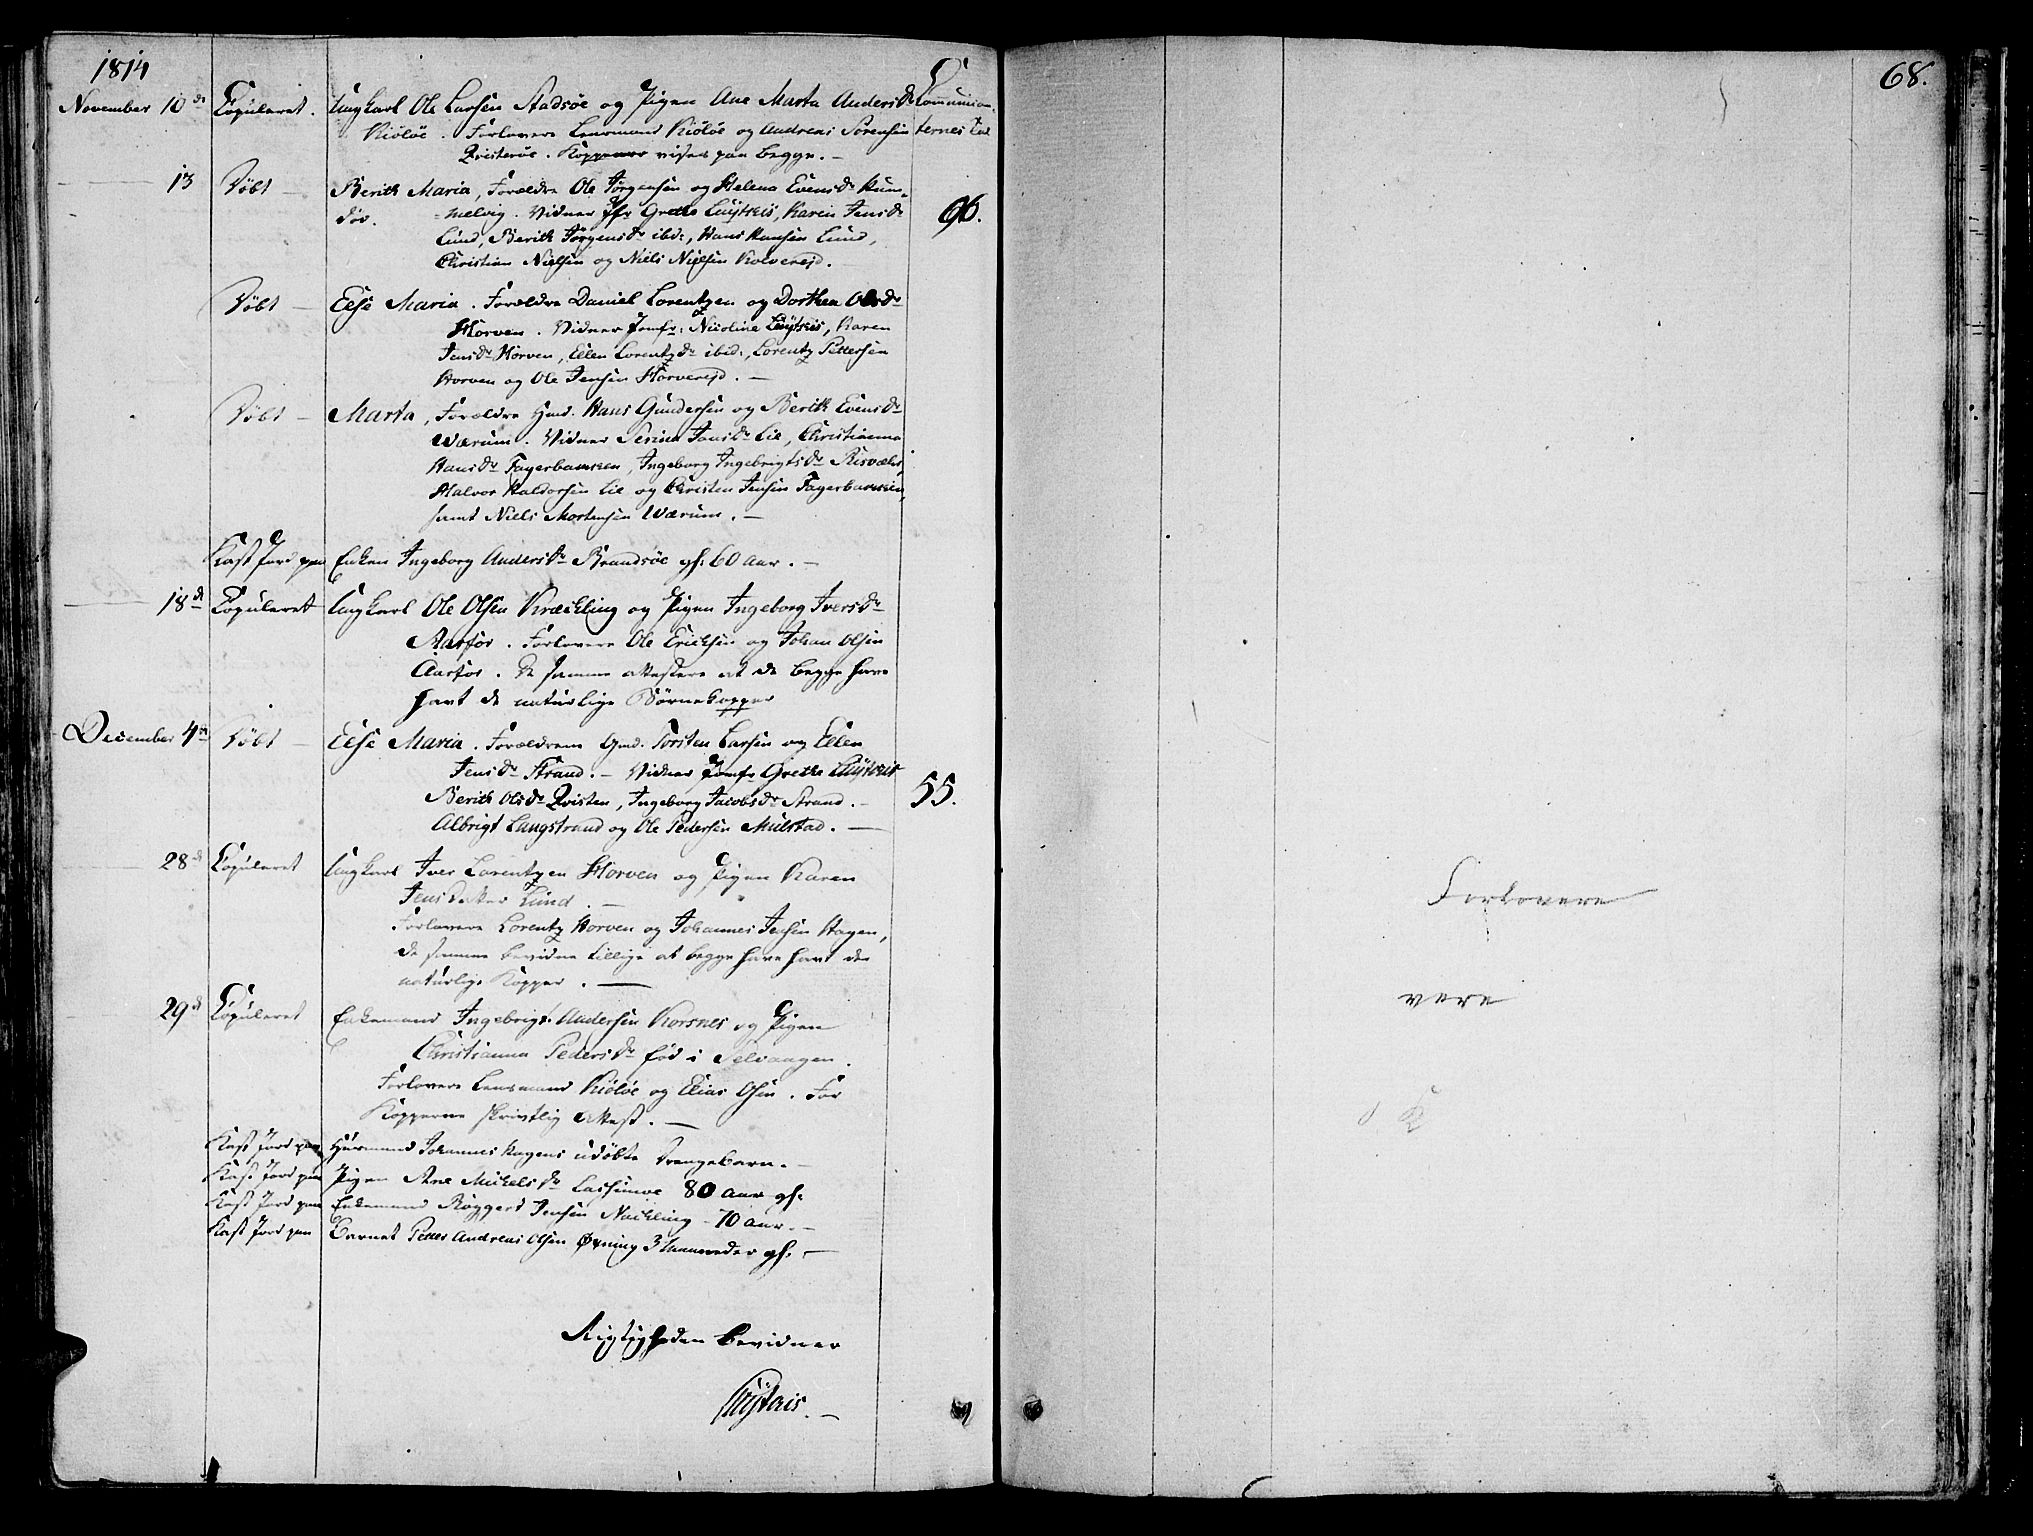 1814
November 10de Copuleret. Ungkarl Ole Larsen Stadsøe og Pigen Ane Marta Andersdr Communican-
Kiøløe. Forlovere Lensmand Kiøløe og Andreas Sørensen ternes Tal
Qvisterøe. Kopperne vises paa begge. —
13 Døbt — Berith Maria, Forældre Ole Jørgensen og Helena Evensdr Kum-
døv. melvig. Vidner Jfr Grethe Luytkis, Karen Jensdr 96.
Lund, Berith Jørgensdr ibid:, Hans Hansen Lund,
Christian Nielsen og Niels Nielsen Kolvereid.
Døbt — Else Maria. Forældre Daniel Lorentzen og Dorthea Olsdr
Horven. Vidner Jomfr: Nicoline Luytkis, Karen
Jensdr Horven, Ellen Lorentzdr ibid:, Lorentz Pettersen
Horven og Ole Jensen Horvereid. —
Døbt — Marta, Forældre Hmd. Hans Gundersen og Berith Evensdr
Wærum. Vidner Perina Jensdr Lie, Christianna
Hansdr Fagerbakken, Ingeborg Ingebrigtsdr
Halvor Haldorsen Lie og Christen Jensen Fagerbakken,
samt Niels Mortensen Wærum. —
Kast Jord paa Enken Ingeborg Andersdr Brandsøe gl: 60 aar. —
18de Copuleret Ungkarl Ole Olsen Krækling og Pigen Ingeborg Iversdr
Aarfor. Forlovere Ole Ericksen og Johan Olsen
Aarfor. De samme attestere at de begge have
havt de naturlige Børnekopper
December 4de Døbt — Else Maria. Forældrene Gmd. Torsten Larsen og Ellen
Jensdr Strand. — Vidner Jomfr Grethe Luytkis
Berith Olsdr Qvisten, Ingeborg Jacobsdr Strand. — 55.
Albrigt Langstrand og Ole Pedersen Mulstad. —
28de Copuleret Ungkarl Iver Lorentzen Horven og Pigen Karen
Jensdatter Lund. —
Forlovere Lorentz Horven og Johannes Jensen Hagen,
de samme bevidne tillige at begge have havt de
naturlige Kopper. —
29de Copuleret Enkemand Ingebrigt Andersen Korsnes og Pigen
Christianna Pedersdr fød i Selvaagen.
Forlovere Lensmand Kiøløe og Elias Olsen. For
Kopperne skrivtlig Attest. —
Kast Jord paa Huusmand Johannes Hagens udøbte Drengebarn. —
Kast Jord paa Pigen Ane Mickelsdr 80 aar gl:
Kast Jord paa Enkemand Røggert Jensen Nackling — 70 aar. —
Kast Jord paa Barnet Petter Andreas Olsen Øvning 3 Maaneder gl: —
Rigtigheden bevidner
Luytkis. —
68.
Forlovere
vere
K